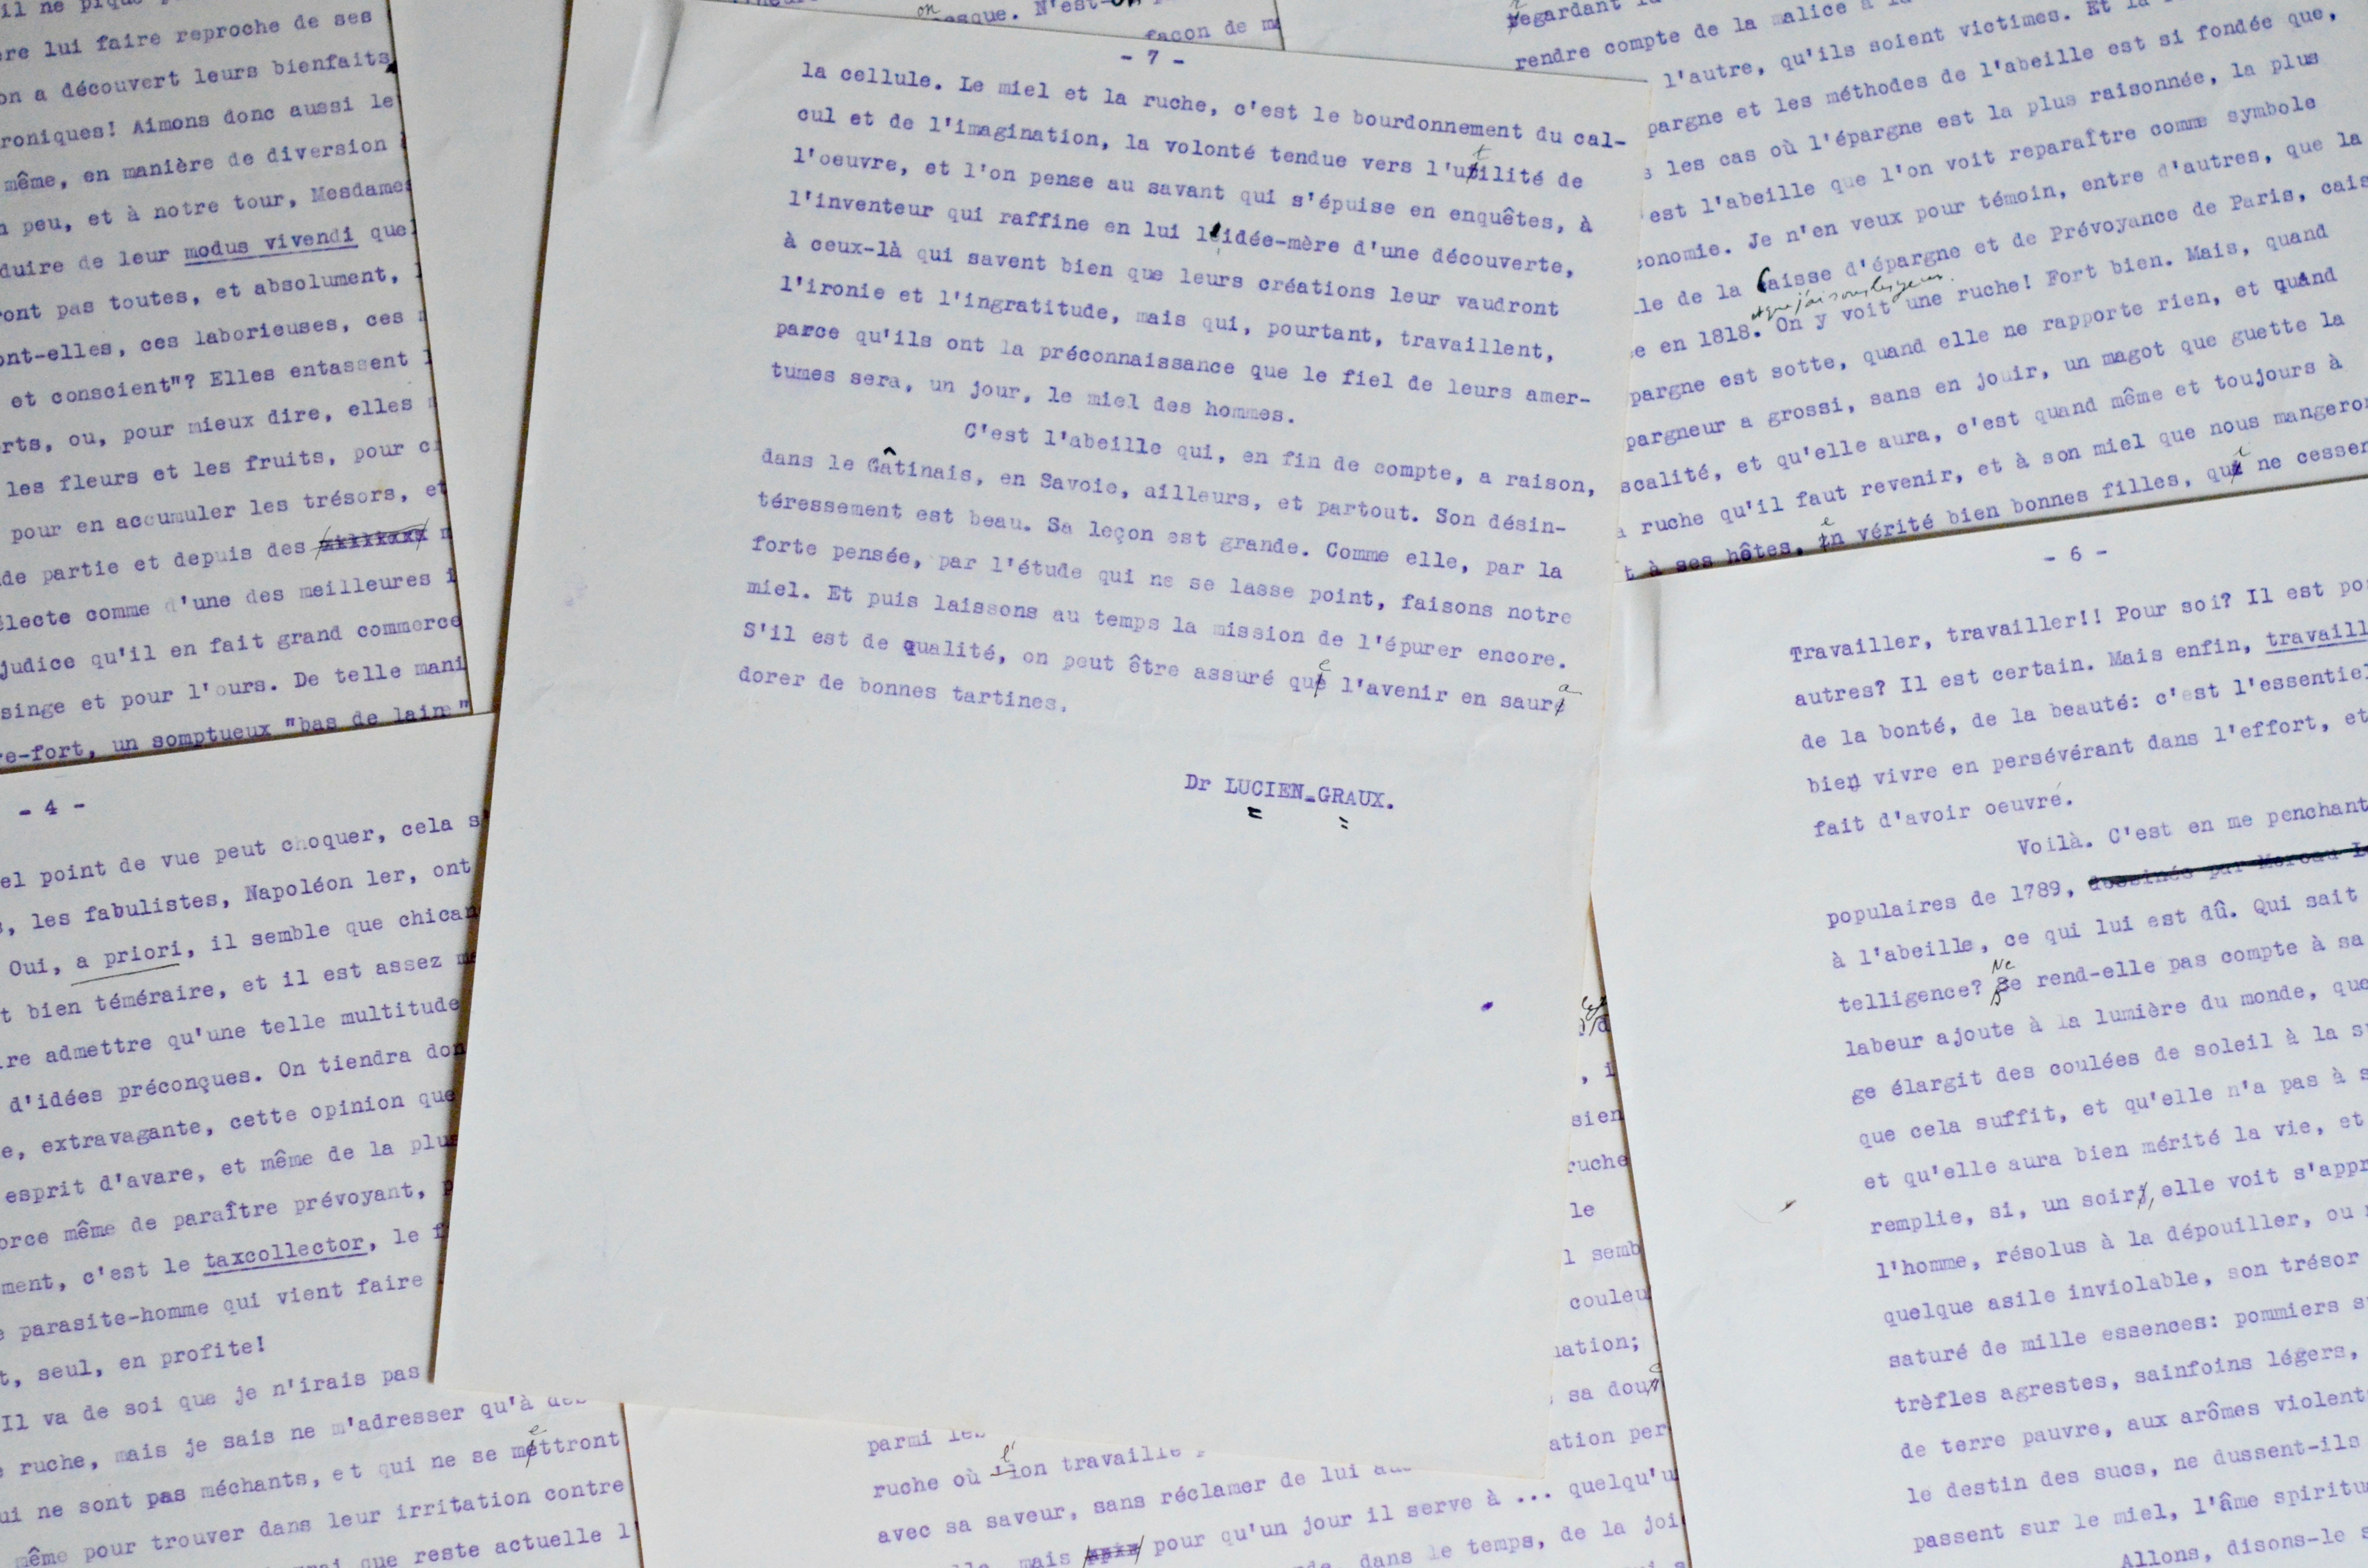 - 7 -
la cellule. Le miel et la ruche, c'est le bourdonnement du cal-
cul et de l'imagination, la volonté tendue vers l'utilité de
l'oeuvre, et l'on pense au savant qui s'épuise en enquêtes, à
l'inventeur qui raffine en lui l'idée-mère d'une découverte,
à ceux-là qui savent bien que leurs créations leur vaudront
l'ironie et l'ingratitude, mais qui, pourtant, travaillent,
parce qu'ils ont la préconnaissance que le fiel de leurs amer-
tumes sera, un jour, le miel des hommes.
C'est l'abeille qui, en fin de compte, a raison,
dans le Gâtinais, en Savoie, ailleurs, et partout. Son désin-
téressement est beau. Sa leçon est grande. Comme elle, par la
forte pensée, par l'étude qui ne se lasse point, faisons notre
miel. Et puis laissons au temps la mission de l'épurer encore.
S'il est de qualité, on peut être assuré que l'avenir en saura
dorer de bonnes tartines.
Dr LUCIEN-GRAUX.
il ne
lui faire reproche de ses
on a découvert leurs bienfaits
roniques! Aimons donc aussi le
même, en manière de diversion
peu, et à notre tour, Mesdames
duire de leur modus vivendi
ont pas toutes, et absolument,
ont-elles, ces laborieuses, ces
et conscient"? Elles entassent
rts, ou, pour mieux dire, elles
les fleurs et les fruits, pour
pour en accumuler les trésors, et
de partie et depuis des
électe comme d'une des meilleures
judice qu'il en fait grand commerce
singe et pour l'ours. De telle mani
re-fort, un somptueux "bas de laine"
- 4 -
el point de vue peut choquer, cela
les fabulistes, Napoléon 1er, ont
Oui, a priori, il semble que chican
t bien téméraire, et il est assez
re admettre qu'une telle multitude
d'idées préconçues. On tiendra don
e, extravagante, cette opinion que
esprit d'avare, et même de la plus
orce même de paraître prévoyant,
ment, c'est le taxcollector, le
parasite-homme qui vient faire
t, seul, en profite!
Il va de soi que je n'irais pas
ruche, mais je sais ne m'adresser qu'à
ui ne sont pas méchants, et qui ne se mettront
même pour trouver dans leur irritation contre
que reste actuelle
on
esque. N'est-
façon de
regardant
rendre compte de la malice à
l'autre, qu'ils soient victimes. Et la
pargne et les méthodes de l'abeille est si fondée que,
les cas où l'épargne est la plus raisonnée, la plus
est l'abeille que l'on voit reparaître comme symbole
conomie. Je n'en veux pour témoin, entre d'autres, que la
le de la Caisse d'épargne et de Prévoyance de Paris, cais
et que j'ai sous les yeux.
e en 1818. On y voit une ruche! Fort bien. Mais, quand
pargne est sotte, quand elle ne rapporte rien, et quand
pargneur a grossi, sans en jouir, un magot que guette la
scalité, et qu'elle aura, c'est quand même et toujours à
ruche qu'il faut revenir, et à son miel que nous mangeron
t à ses hôtes, en vérité bien bonnes filles, qui ne cessen
- 6 -
Travailler, travailler!! Pour soi? Il est pos
autres? Il est certain. Mais enfin, travaill
de la bonté, de la beauté: c'est l'essentiel
bien vivre en persévérant dans l'effort, et
fait d'avoir oeuvré.
Voilà. C'est en me penchant
populaires de 1789, dessinés par Moreau
à l'abeille, ce qui lui est dû. Qui sait
telligence? Ne se rend-elle pas compte à sa
labeur ajoute à la lumière du monde, que
ge élargit des coulées de soleil à la
que cela suffit, et qu'elle n'a pas à
et qu'elle aura bien mérité la vie, et
remplie, si, un soir, elle voit s'appr
l'homme, résolus à la dépouiller, ou
quelque asile inviolable, son trésor
saturé de mille essences: pommiers
trèfles agrestes, sainfoins légers,
de terre pauvre, aux arômes violent
le destin des sucs, ne dussent-ils
passent sur le miel, l'âme spiritu
Allons, disons-le
sien
ruche
le
l semb
couleu
ation;
sa dou
parmi
ation per
ruche où l'on travaille
avec sa saveur, sans réclamer de lui
pour qu'un jour il serve à ... quelqu'u
mais
dans le temps, de la joi